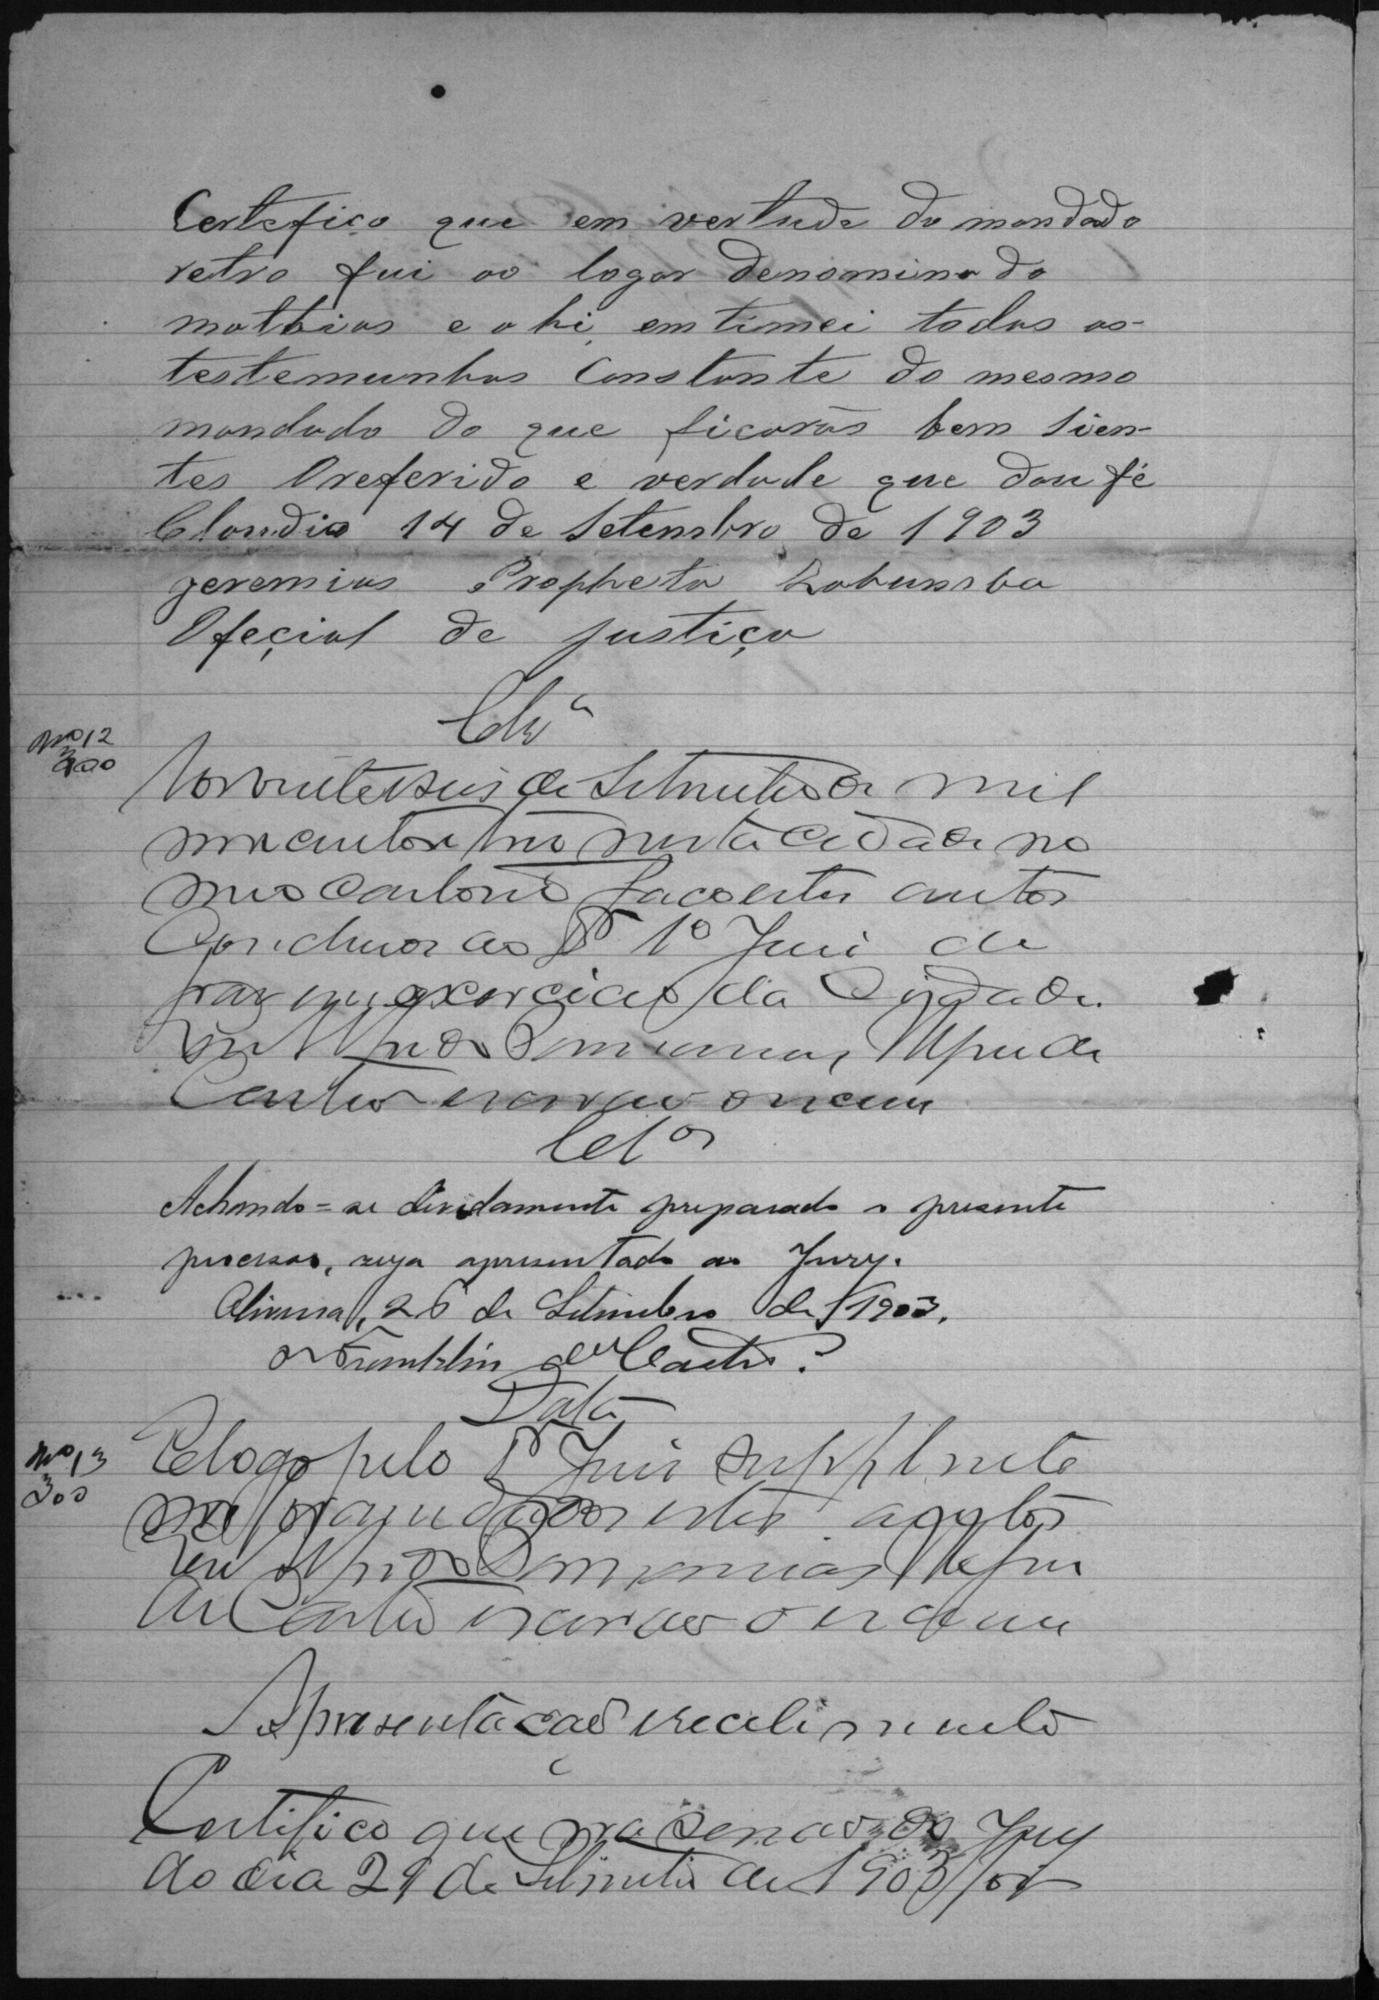 Certefico que em vertude do mandado
retro fui ao logar denominado
mathias e ahi, emtimei todas as-
testemunhas Constante do mesmo
mandado do que ficarão bem sien-
tes O referido e verdade que dou fé
Claudio 14 de Setembro de 1903
geremias Propheta
Ofeçial de justiça
Clzᵃ
Nº 12
300
Aos vinte e seis de Setembro de mil
novecentos e tres nesta cidade no
meo cartorio faço estes autos
Conclusos ao Dr 1º Juiz de
paz em exercicio da
Eu
Castro escrivão o escrevi
Clˢ
Achando=se devidamente preparado o presente
processo, seja apresentado ao Jury.
26 de Setembro de 1903.
Franklin de Castro.
Data
Nº 13
300
E logo pelo Dr Juiz Supplente
me foram dados estes autos
Eu
de Castro escrivão o escrevi
Apresentação e recebimento
Certifico que na do Jury
do dia 29 de Setembro de 1903 foi